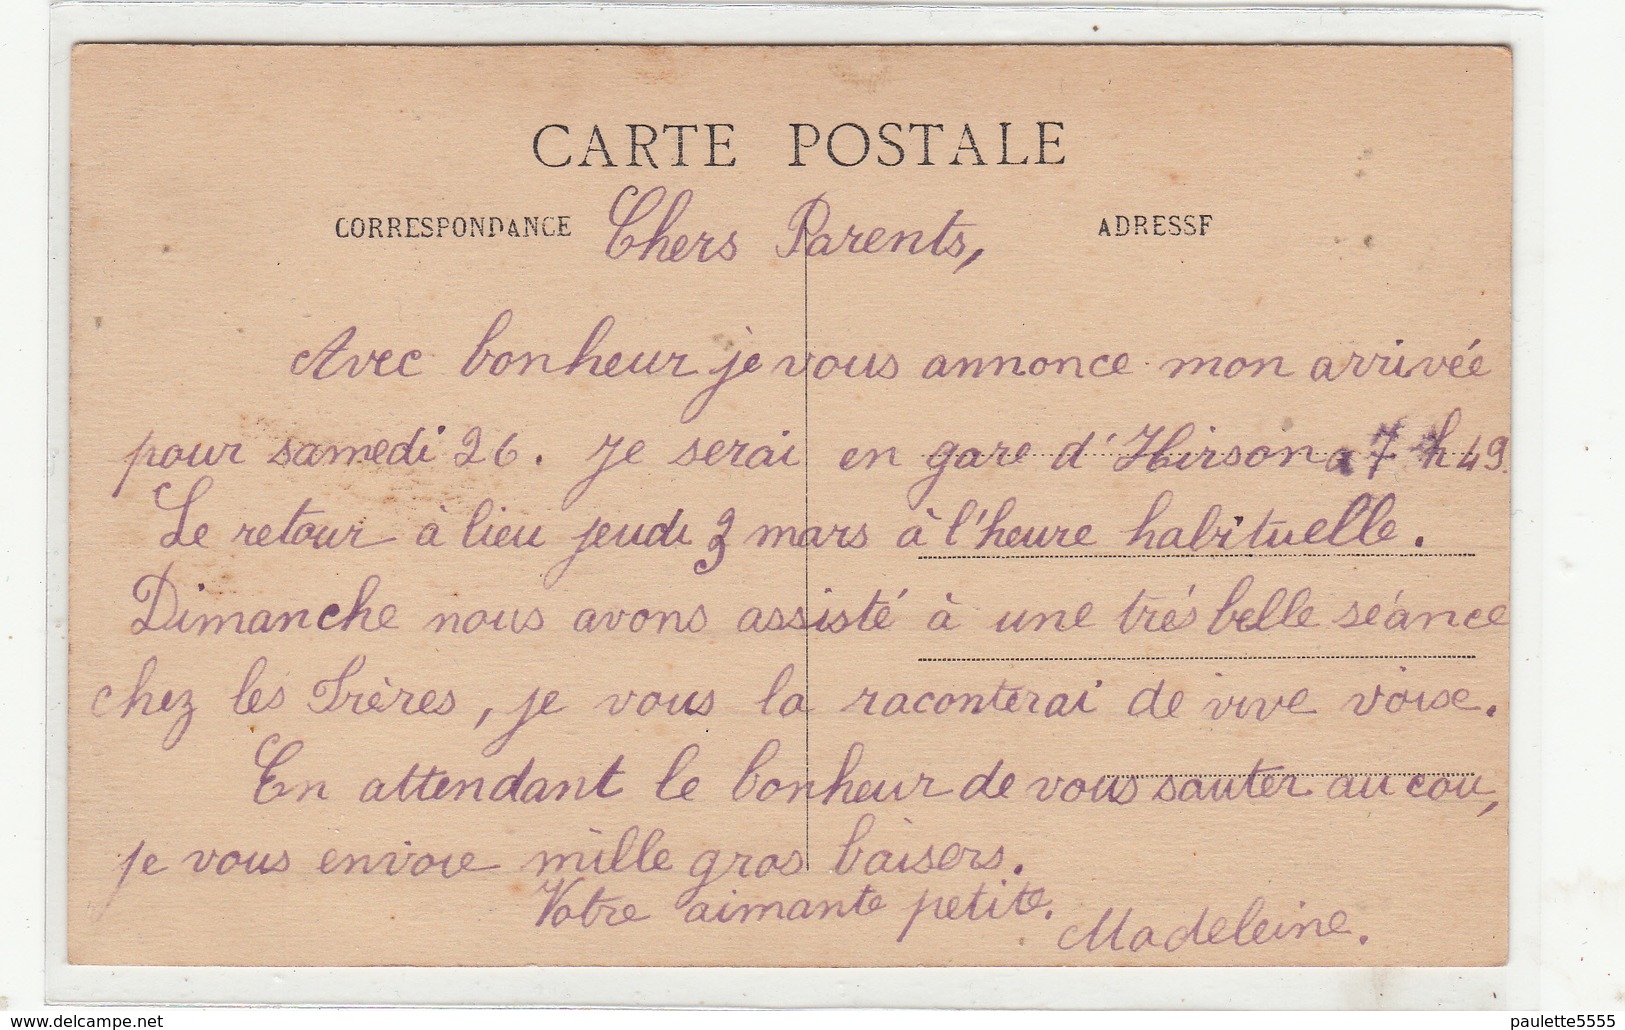 CARTE POSTALE
CORRESPONDANCE
ADRESSE
Chers Parents,
Avec bonheur je vous annonce mon arrivée
pour samedi 26. Je serai en gare d'Hirson à 7 h 49.
Le retour à lieu jeudi 3 mars à l'heure habituelle.
Dimanche nous avons assisté à une trés belle séance
chez les Frères, je vous la raconterai de vive voise.
En attendant le bonheur de vous sauter au cou,
je vous envoie mille gros baisers.
Votre aimante petite.
Madeleine.
www.delcampe.net
paulette5555